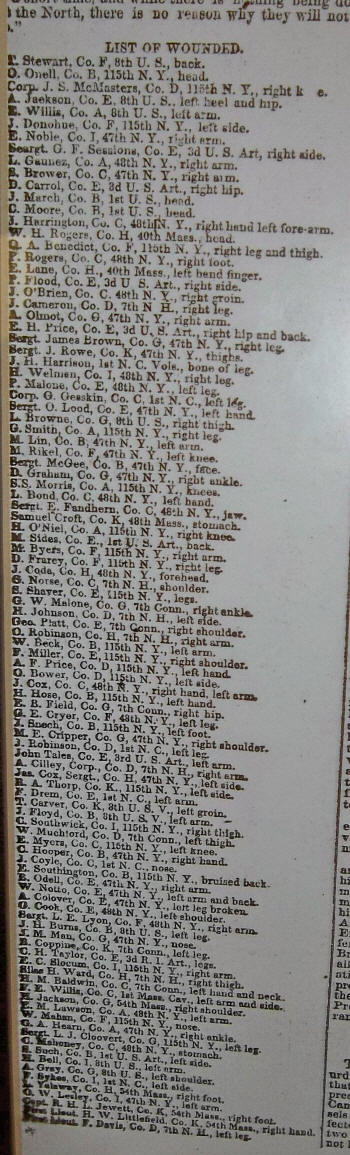 the North, there is no reason why they will not
LIST OF WOUNDED.
T. Stewart, Co. F, 8th U. S., back.
O. Onell, Co. B, 115th N. Y., head.
Corp. J. S. McMasters, Co. D, 115th N. Y., right k e.
A. Jackson, Co. E, 8th U. S., left heel and hip.
E. Willis, Co. A, 8th U. S., left arm.
J. Donohue, Co. F, 115th N. Y., left side.
E. Noble, Co. I, 47th N. Y., right arm.
Seargt. G. F. Sessions, Co. E, 3d U. S. Art, right side.
L. Gaunez, Co. A, 48th N. Y., right arm.
S. Brower, Co. C, 47th N. Y., right arm.
D. Carrol, Co. E, 3d U. S. Art., right hip.
J. March, Co. B, 1st U. S., head.
C. Moore, Co. B, 1st U. S., head.
J. Harrington, Co. C, 48th N. Y., right hand left fore-arm.
W. H. Rogers, Co. H, 40th Mass., head.
A. Benedict, Co. F, 115th N. Y., right leg and thigh.
P. Rogers, Co. C, 48th N. Y., right foot.
E. Lane, Co. H., 40th Mass., left hand finger.
P. Flood, Co. E, 3d U S. Art., right side.
J. O'Brien, Co. C. 48th N. Y., right groin.
J. Cameron, Co. D, 7th N H., right leg.
A. Olmot, Co. G, 47th N. Y., right arm.
E. H. Price, Co. E, 3d U. S. Art., right hip and back.
Sergt. James Brown, Co. G, 47th N. Y., right leg.
Sergt. J. Rowe, Co. K, 47th N. Y., thighs.
J. H. Harrison, 1st N. C. Vols., bone of leg.
H. Welman, Co. I, 48th N. Y., right leg.
P. Malone, Co. E, 48th N. Y., left leg.
Corp. G. Gesskin, Co. C, 1st N. C., left leg.
Sergt. O. Lood, Co. E, 47th N. Y., left hand.
L. Browne, Co. G, 8th U. S., right thigh.
G. Smith, Co. A, 115th N. Y., right leg.
M. Lin, Co. B, 47th N. Y., left arm.
M. Rikel, Co. F, 47th N. Y., left knee.
Sergt. McGee, Co. B, 47th N. Y., face.
D. Graham, Co. G, 47th N. Y., right ankle.
S.S. Morris, Co. A, 115th N. Y., knees.
L. Bond, Co. C, 48th N. Y., left hand.
Sergt. E. Fandhern, Co. C, 48th N. Y., jaw.
Samuel Croft, Co. K, 48th Mass., stomach.
H. O'Niel, Co. A, 115th N. Y., right knee.
M. Sides, Co. E., 1st U. S. Art., back.
Mr. Byers, Co. F, 115th N. Y., right arm.
D. Frarey, Co. F, 115th N. Y., right leg.
J. Coda, Co. H, 48th N. Y., forehead.
G. Norse, Co. C, 7th N. H., shoulder.
S. Shaver, Co. E, 115th N. Y., legs.
G. W. Malone, Co. G, 7th Conn., right ankle.
H. Johnson, Co. D, 7th N. H., left side.
Geo. Platt, Co. E, 7th Conn., right shoulder.
O. Robinson, Co. H, 7th N. H., right arm.
W. Beck, Co. B, 115th N. Y., left arm.
F. Miller, Co. E, 115th N. Y., right shoulder.
A. F. Price, Co. D, 115th N. Y., left hand.
O. Bower, Co. D, 115th N. Y., left side.
J. Cox, Co. C, 48th N. Y., right hand, left arm.
H. Hose, Co. B, 115th N. Y., left hand.
E. B. Field, Co. G, 7th Conn., right hip.
G. E. Cryer, Co. F, 48th N. Y., left leg.
J. Snech, Co. B, 115th N. Y., left foot.
M. E. Cripper, Co. G, 47th N. Y., right shoulder.
J. Robinson, Co. D, 1st N. C., left leg.
John Tales, Co. E, 3rd U. S. Art., left arm.
A. Cilley, Corp., Co. D, 7th N. H., right arm.
Jas. Cox, Sergt., Co. H, 47th N. Y., left side.
R. A. Thorp, Co. K., 115th N. Y., left side.
F. Drem, Co. E, 1st N. C., left arm.
T. Carver, Co. K, 8th U. S. V., left groin.
J. Floyd, Co. B, 8th U. S. V., left arm.
C. Southwick, Co. I, 115th N. Y., right thigh.
W. Muchford, Co. D, 7th Conn., left thigh.
E. Myers, Co. C, 115th N. Y., left knee.
C. Hooper, Co. B, 47th N. Y., right hand.
J. Coyle, Co. C, 1st N. C., nose.
E. Southington, Co. B, 115th N. Y., bruised back.
E. Odell, Co. E, 47th N. Y., right arm.
W. Notto, Co. E, 47th N. Y., left arm and back.
A. Colover, Co. E, 47th N. Y., left leg broken.
O. Cook, Co. E, 48th N. Y., left shoulder.
Sergt. L. E. Lyon, Co. F, 48th N. Y., right arm.
J. H. Burns, Co. B, 8th U. S., left leg.
J. M. Man, Co. G, 47th N. Y., nose.
B. Coppine, Co. K, 7th Conn., left leg.
C. H. Taylor, Co. E, 3d R. I. Art., legs.
E. C. Slocum, Co. I, 115th N. Y., right arm.
Silas H. Ward, Co. H, 7th N. H., right thigh.
H. M. Baldwin, Co. C, 7th Conn., left hand and neck.
F. E. Willis, Co. C, 1st Mass. Cav., left arm and side.
M. Jackson, Co. G, 54th Mass., right shoulder.
E. M. Lawson, Co. A, 48th N. Y., left arm.
W. Maham, Co. F, 115th N. Y., nose.
G. A. Hearn, Co. A, 47th N. Y., right ankle.
Sergt. L. J. Cloovert, Co. G, 115th N. Y., left leg.
C. Mahoney, Co. C, 48th N. Y., stomach.
H. Such, Co. B, 1st U. S. Art., left side.
H. Bell, Co. I, 8th U. S., left shoulder.
A. Gray, Co. G, 8th U. S., left side.
F. Sykes, Co. I, 1st N. C., left side.
L. Vanway, Co. H, 54th Mass., right foot.
O. W. Lesley, Co. I, 47th N. Y., left arm.
Capt. R. H. L. Jewett, Co. K, 54th Mass., right foot.
First Lieut. H. W. Littlefield, Co. K, 54th Mass., right hand.
Lieut. F. Davis, Co. D, 7th N. H., left leg.